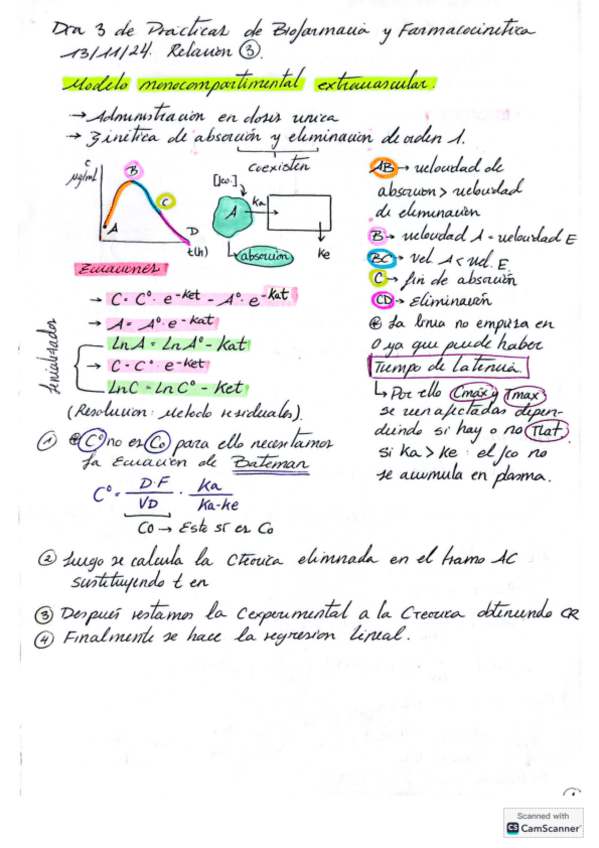 Dia 3 de Prácticas de Biofarmacia y Farmacocinética
13/11/24. Relación ③.
Modelo monocompartimental extravascular.
→ Administración en dosis única
→ Cinética de absorción y eliminación de orden 1.
coexisten
C
µg/mL
A
B
C
D
t(h)
A
ka
Ke
absorción
AB → velocidad de
absorción > velocidad
de eliminación
B → velocidad A = velocidad E
BC → Vel. A < vel. E
C → fin de absorción
CD → Eliminación
⊛ La línea no empieza en
0 ya que puede haber
Tiempo de Latencia.
↳ Por ello Cmáx y Tmax
se ven afectadas depen-
diendo si hay o no Tlat.
si Ka > Ke : el fco no
se acumula en plasma.
Ecuaciones
→ C = C⁰ · e -Ket - A⁰ · e -Kat
→ A = A⁰ · e -Kat
LnA = LnA⁰ - Kat
→ C = C⁰ · e -Ket
LnC = LnC⁰ - Ket
Linealizadas
(Resolución: Método residuales).
① ⊛ C⁰ no es Co para ello necesitamos
la Ecuación de Bateman
C⁰ = D·F / VD · Ka / Ka-ke
CO → Este sí es Co
② Luego se calcula la Cteórica eliminada en el tramo AC
sustituyendo t en
③ Después restamos la Cexperimental a la Cteórica obteniendo CR
④ Finalmente se hace la regresión lineal.
Scanned with
CS CamScanner